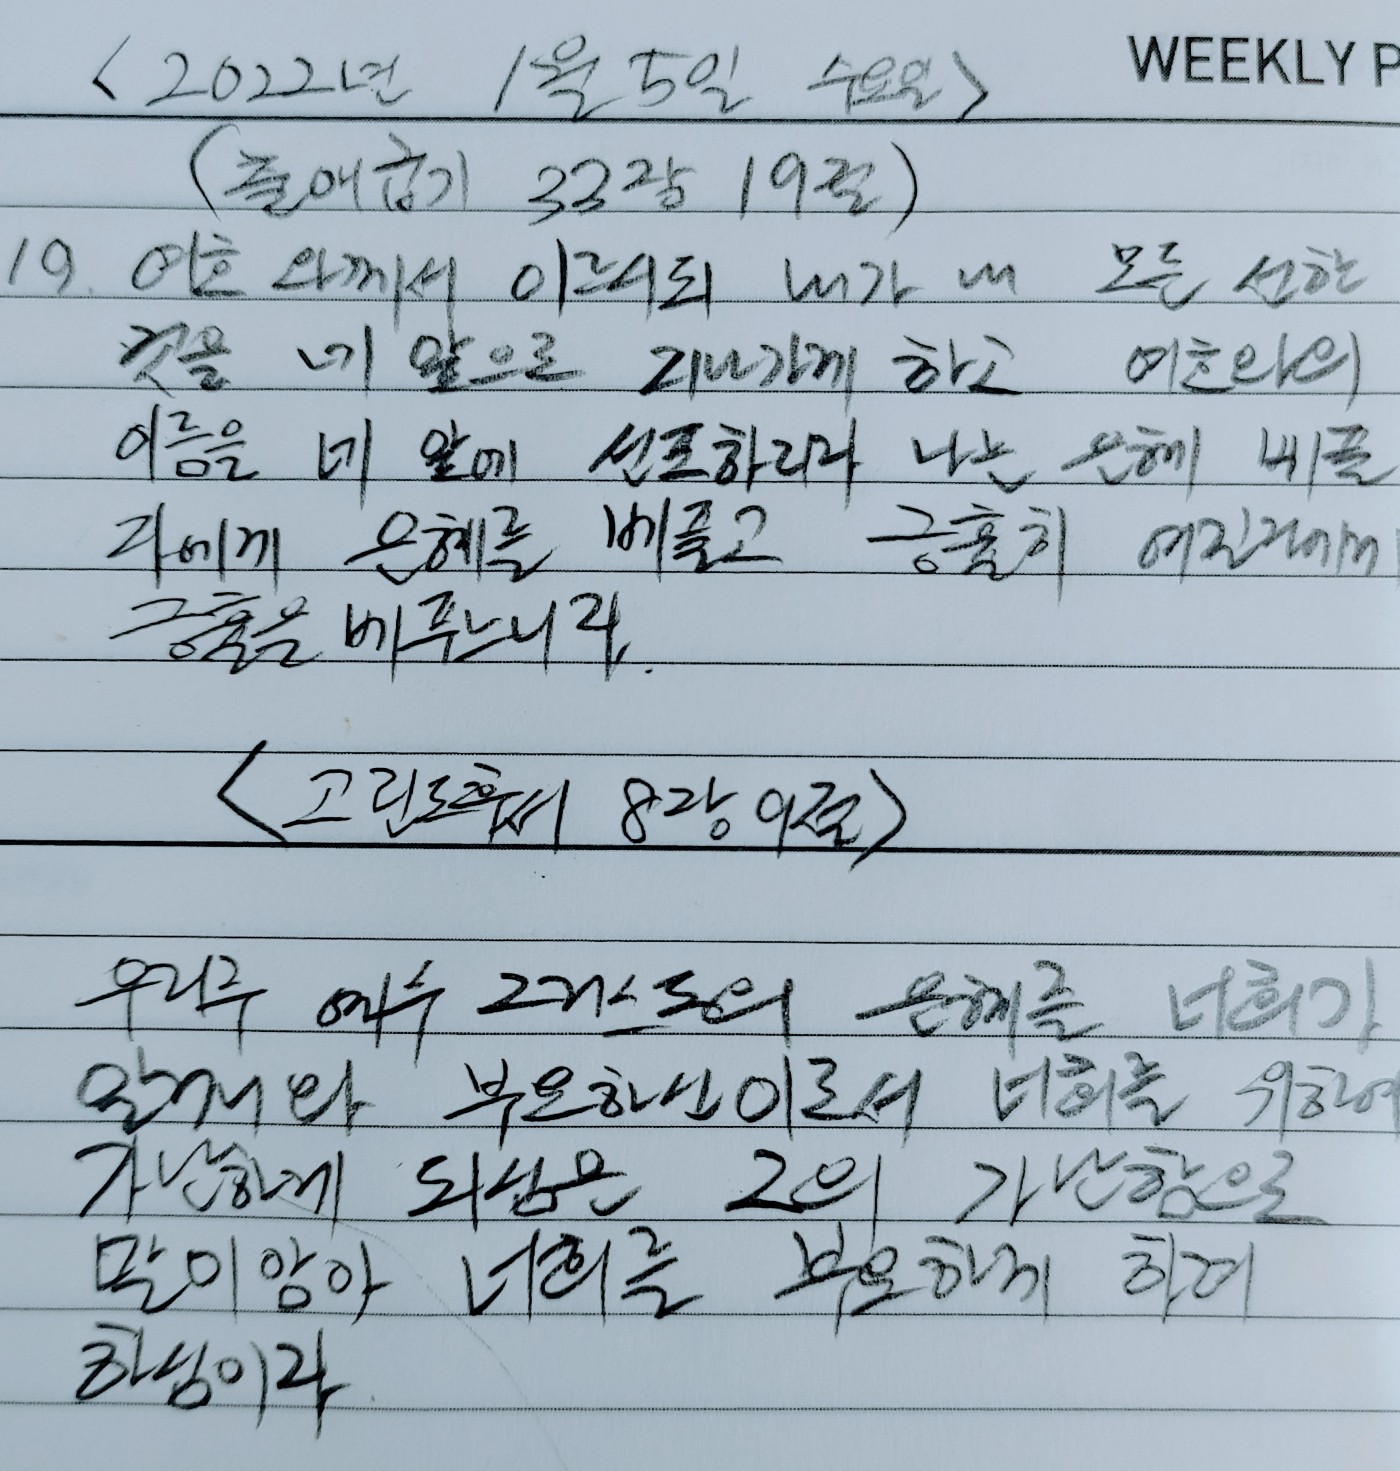 WEEKLY P
<2022년 1월 5일 수요일>
(출애굽기 33장 19절)
19. 여호와께서 이르시되 내가 내 모든 선한
것을 네 앞으로 지나가게 하고 여호와의
이름을 네 앞에 선포하리라 나는 은혜 베풀
자에게 은혜를 베풀고 긍휼히 여길자에게
긍휼을 베푸느니라.
<고린도후서 8장 9절>
우리주 예수 그리스도의 은혜를 너희가
알거니와 부요하신이로서 너희를 위하여
가난하게 되심은 그의 가난함으로
말미암아 너희를 부요하게 하려
하심이라.